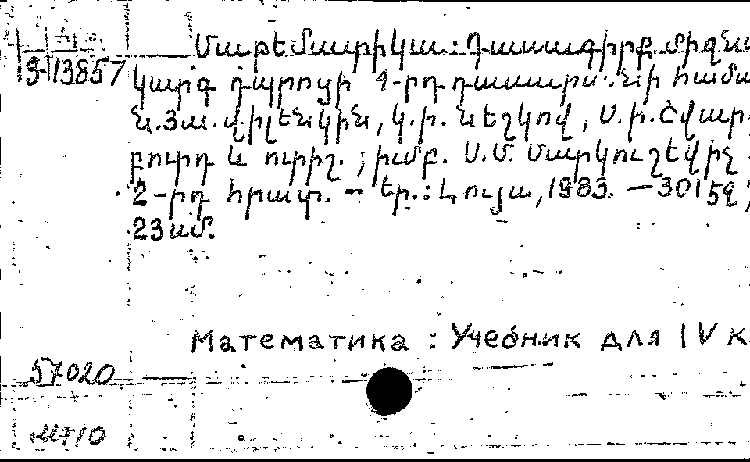 Մաթեմատիկա : Դասագիրք միջնա
3-13857
կարգ դպրոցի 4-րդ դասարանի համա
Ն.Յա.Վիլենկին, Կ.Ի. Նեշկով, Ս.Ի.Շվարց
բուրդ և ուրիշ. ; խմբ. Ա.Ի. Մարկուշևիչ
2-րդ հրատ. - Եր.: Լույս, 1983. - 301 էջ ;
23 սմ.
Математика : Учебник для IV к
57020